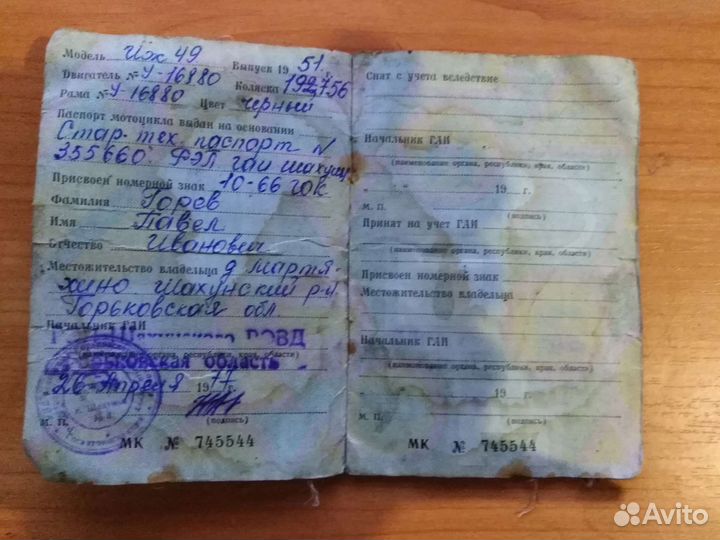 Модель Иж 49 Выпуск 19 51.
Двигатель № У-16880 Коляска 192756
Рама № У-16880 Цвет черный
Паспорт мотоцикла выдан на основании
Стар-тех. паспорт №
355660. ФЭП гаи шахунц
Присвоен номерной знак 10-66 гок
Фамилия Горев
Имя Павел
Отчество Иванович
Местожительство владельца д Мартя-
хино Шахунский р-н
Горьковская обл.
Начальник ГАИ
РОВД
(наименование органа, республики, края, области)
Горьковская область
26 Апреля 1977 г.
М. П. (подпись)
МК № 745544
Снят с учета вследствие
Начальник ГАИ
(наименование органа, республики, края, области)
" " 19 г.
М. П. (подпись)
Принят на учет ГАИ
(наименование органа, республики, края, области)
Присвоен номерной знак
Местожительство владельца
Начальник ГАИ
(наименование органа, республики, края, области)
" " 19 г.
М. П. (подпись)
МК № 745544
Avito